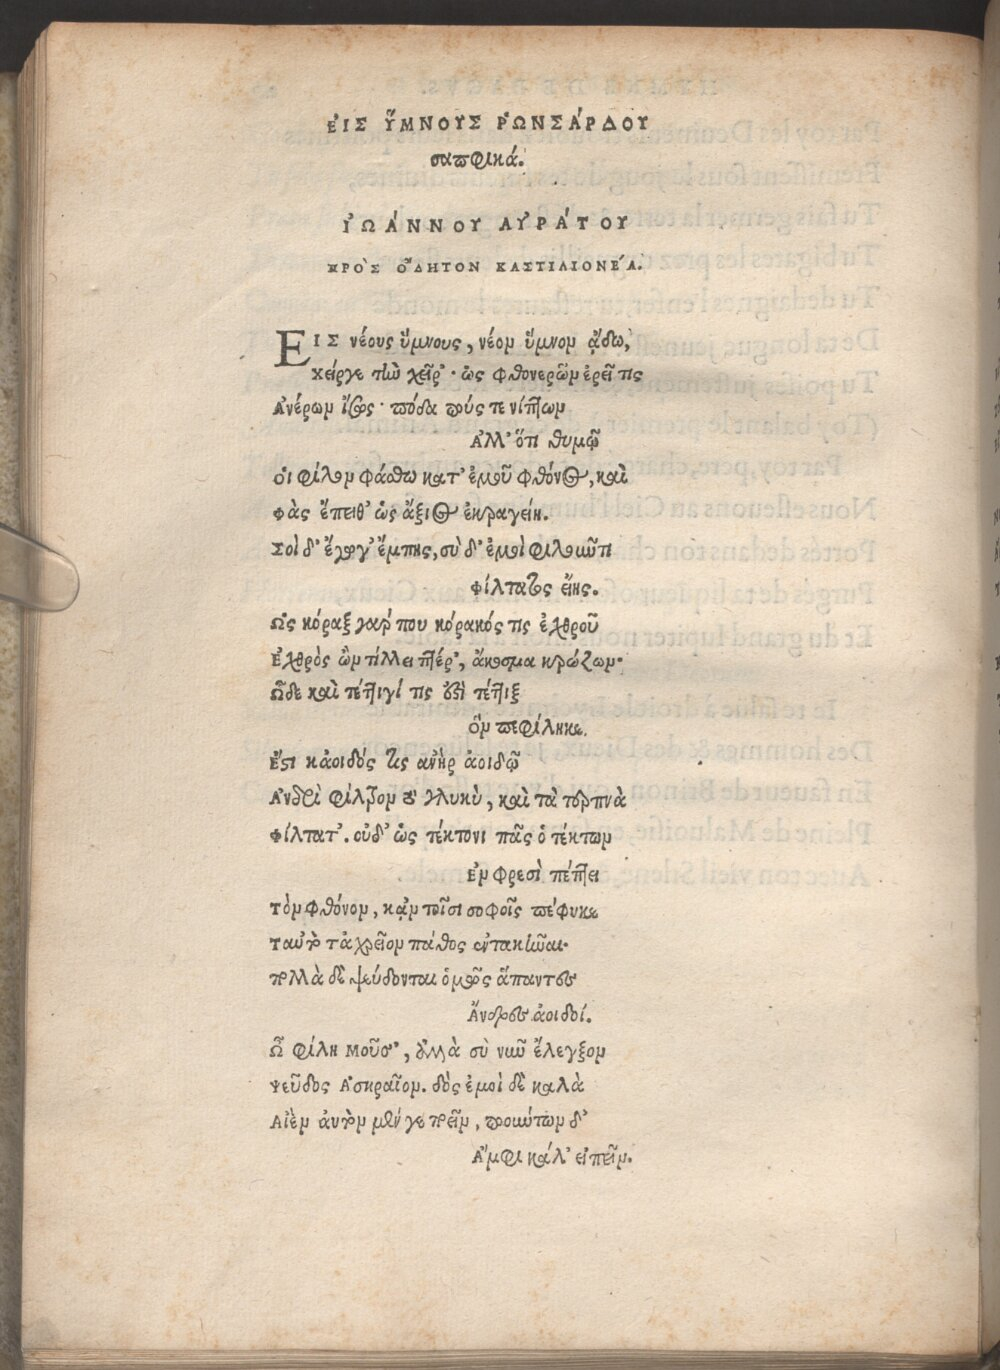 ΕἸΣ ὝΜΝΟΥΣ ῬΩΝΣΆΡΔΟΥ
σαπφικά.
ἸΩΆΝΝΟΥ ΑΥ̓ΡΆΤΟΥ
ΠΡῸΣ ὈΔΗΤΟΝ ΚΑΣΤΙΛΙΟΝΈΑ.
ΕΙΣ νέους ὕμνους, νέον ὕμνον ᾄδω,
χείργε τὴν χεῖρ'· ὡς φθονερῶν ἐρεῖ τις
Ἀνέρων ἴσος· πόδα πούς τε νίπτων
Ἀλλ' ὅτι θυμῷ
Οἱ φίλον φάσθω κατ' ἐμοῦ φθόνος, καὶ
φὰς ἔπειθ' ὡς ἄξιος ἐκραγείη.
Σοὶ δ' ἔμοιγ' ἔμπης, σὺ δ' ἐμοὶ φιλεῦντι
φίλτατος εἴης.
Ὡς κόραξ γάρ που κόρακός τις ἐχθροῦ
Ἐχθρὸς ὢν τίλλει πτέρ', ἄκοσμα κρώζων·
Ὧδε καὶ τέττιγί τις ἐστὶ τέττιξ
ὃν πεφίληκε.
Ἔστι κἀοιδός τις ἀνὴρ ἀοιδῷ
Ἀνδρὶ φίλτρον οὐ γλυκὺ, καὶ τὰ τερπνὰ
φίλτατ'. οὐδ' ὡς τέκτονι πᾶς ὁ τέκτων
Ἐν φρεσὶ πέττει
Τὸν φθόνον, κᾀν τοῖσι σοφοῖς πέφυκε
ψεύδονται ὁμῶς ἅπαντες
Ἄνδρες ἀοιδοί.
Ὦ φίλη Μοῦσ', ἀλλὰ σὺ νῦν ἔλεγξον
Ψεῦδος Ἀσκραῖον. δὸς ἐμοὶ δὲ καλὰ
Αἰὲν αὐτὸν μέν γε ποιεῖν, ποιούντων δ'
Ἀμφὶ κάλ' εἰπεῖν.